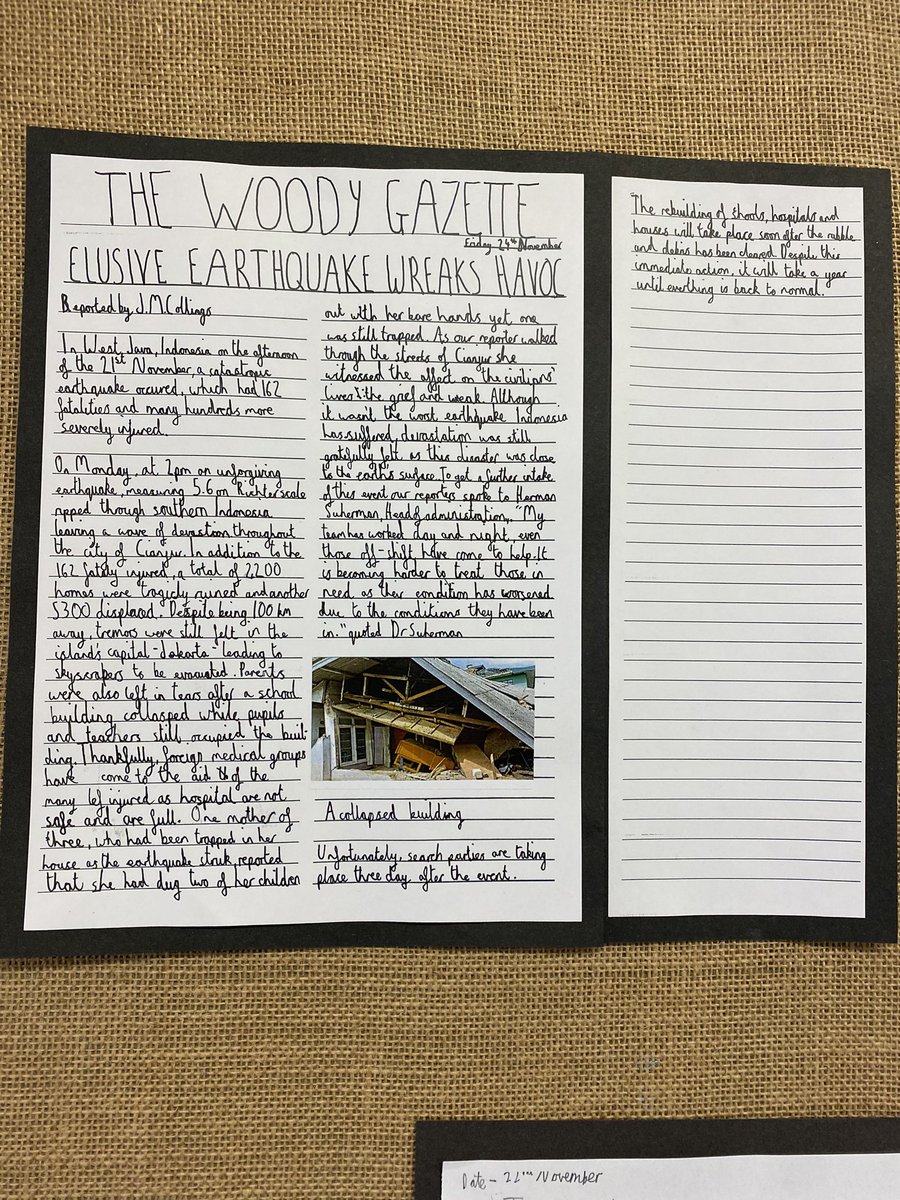 THE WOODY GAZETTE
Friday 24th November
ELUSIVE EARTHQUAKE WREAKS HAVOC
Reported by J.M.Collings
In West Java, Indonesia on the afternoon
of the 21st November, a catastropic
earthquake occured, which had 162
fatalities and many hundreds more
severely injured.
On Monday, at 2pm an unforgiving
earthquake, measuring 5.6 on Richter scale
ripped through southern Indonesia
leaving a wave of devastoon throughout
the city of Cianjur. In addition to the
162 fataly injured, a total of 2200
homes were tragicly ruined and another
5300 displaced. Despite being 100 km
away, tremors were still felt in the
island's capital -Jakarta- leading to
skyscrapers to be evacuated. Parents
were also left in tears after a school
building collapsed while pupils
and teachers still occupied the buil-
ding. Thankfully, foreign medical groups
have come to the aid of the
many lef injured as hospital are not
safe and are full. One mother of
three, who had been trapped in her
house as the earthquake struk, reported
that she had dug two of her children
out with her bare hands yet one
was still trapped. As our reporter walked
through the streets of Cianjur she
witnessed the affect on the civilians'
lives: the grief and weak. Although
it wasn't the worst earthquake Indonesia
has suffered, devastation was still
gratifully felt as this disaster was close
to the earth's surface. To get a further intake
of this event our reporters spoke to Herman
Suherman, Head of administration, "My
team has worked day and night, even
those off-shift have come to help. It
is becoming harder to treat those in
need as their condition has worsened
due to the conditions they have been
in." quoted Dr Suherman
A collapsed building
Unfortunately, search parties are taking
place three day after the event.
"The rebuilding of shools, hospitals and
houses will take place soon after the rubble
and debris has been cleared. Despite this
immediate action, it will take a year
until everthing is back to normal.
Date - 22nd November